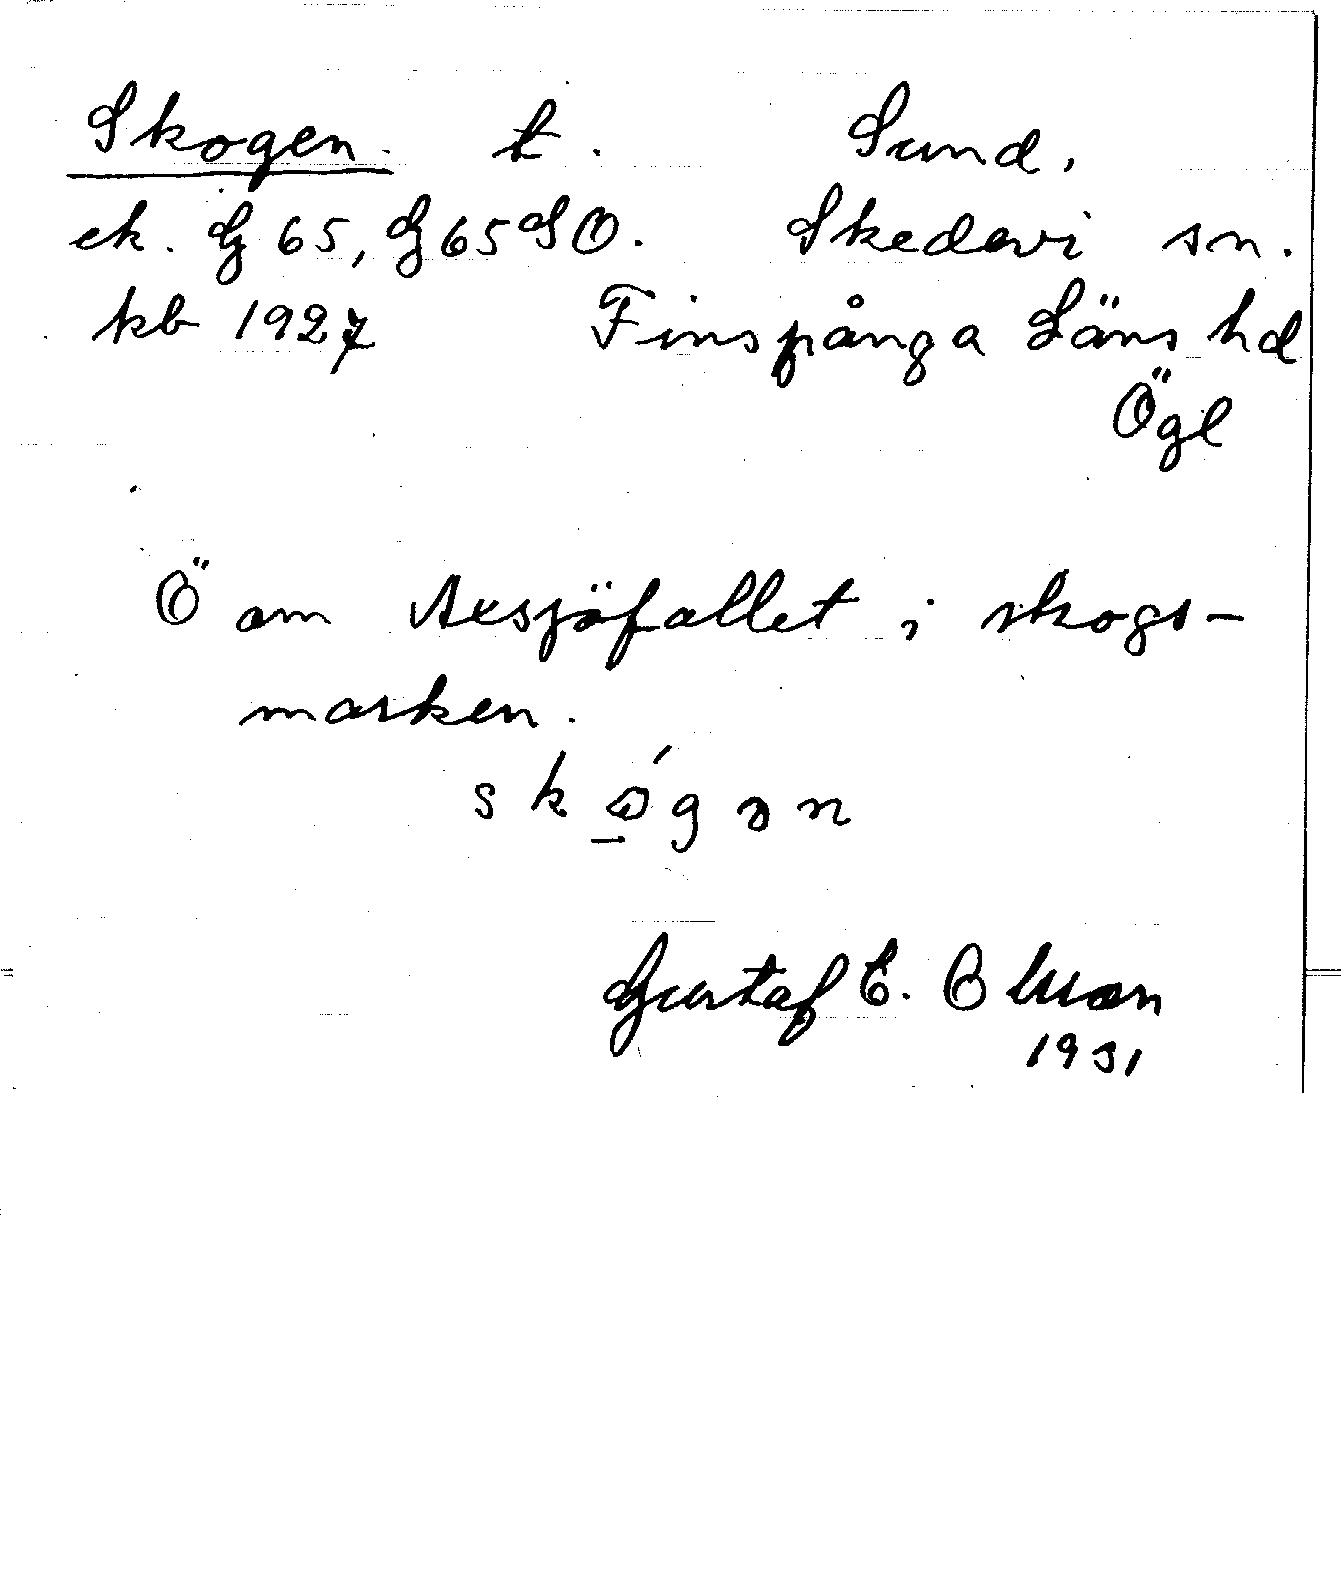 Skogen. t. Sund,
ek. G 65, G 65 SO. Skedevi sn.
kb 1927 Finspånga Läns hd
Ögl
Ö om Axsjöfallet i skogs-
marken.
skógən
Gustaf E. Olsson
1931